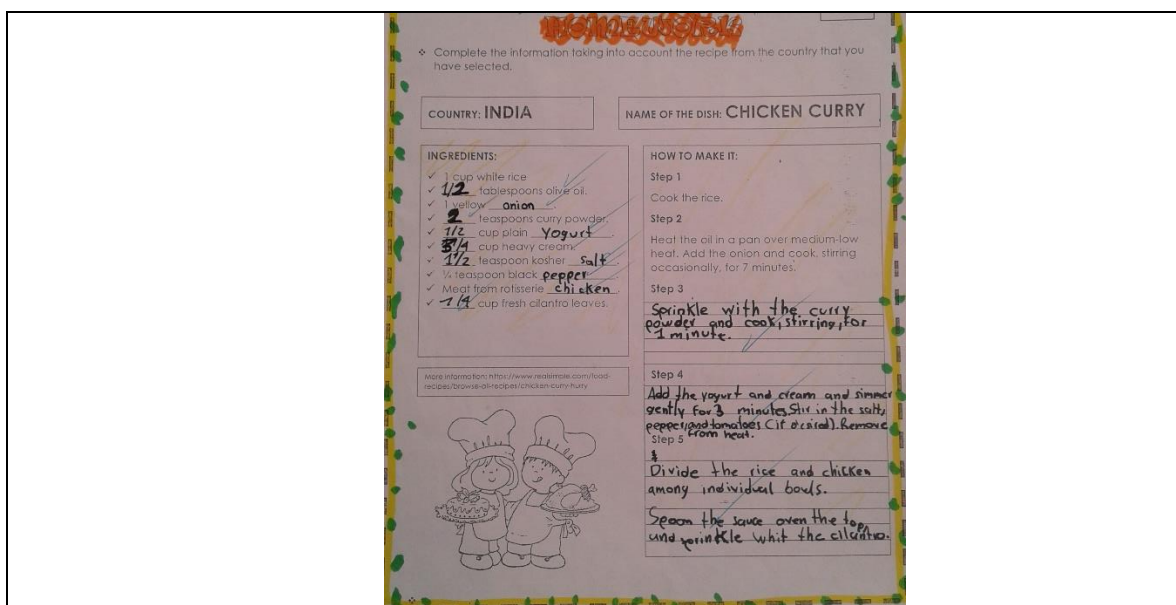 ❖ Complete the information taking into account the recipe from the country that you
have selected.
COUNTRY: INDIA
NAME OF THE DISH: CHICKEN CURRY
INGREDIENTS:
✓ 1 cup white rice
✓ 1/2 tablespoons olive oil.
✓ 1 yellow onion.
✓ 2 teaspoons curry powder.
✓ 1/2 cup plain Yogurt.
✓ 3/4 cup heavy cream.
✓ 1 1/2 teaspoon kosher salt.
✓ ¼ teaspoon black pepper.
✓ Meat from rotisserie chicken
✓ 1/4 cup fresh cilantro leaves.
More information: https://www.realsimple.com/food-
recipes/browse-all-recipes/chicken-curry-hurry
HOW TO MAKE IT:
Step 1
Cook the rice.
Step 2
Heat the oil in a pan over medium-low
heat. Add the onion and cook, stirring
occasionally, for 7 minutes.
Step 3
Sprinkle with the curry
powder and cook, stirring, for
1 minute.
Step 4
Add the yogurt and cream and simmer
gently for 3 minutes. Stir in the salt,
pepper, and tomatoes (if desired). Remove
from heat.
Step 5
Divide the rice and chicken
among individual bowls.
Spoon the sauce oven the top,
and sprinkle whit the cilantro.